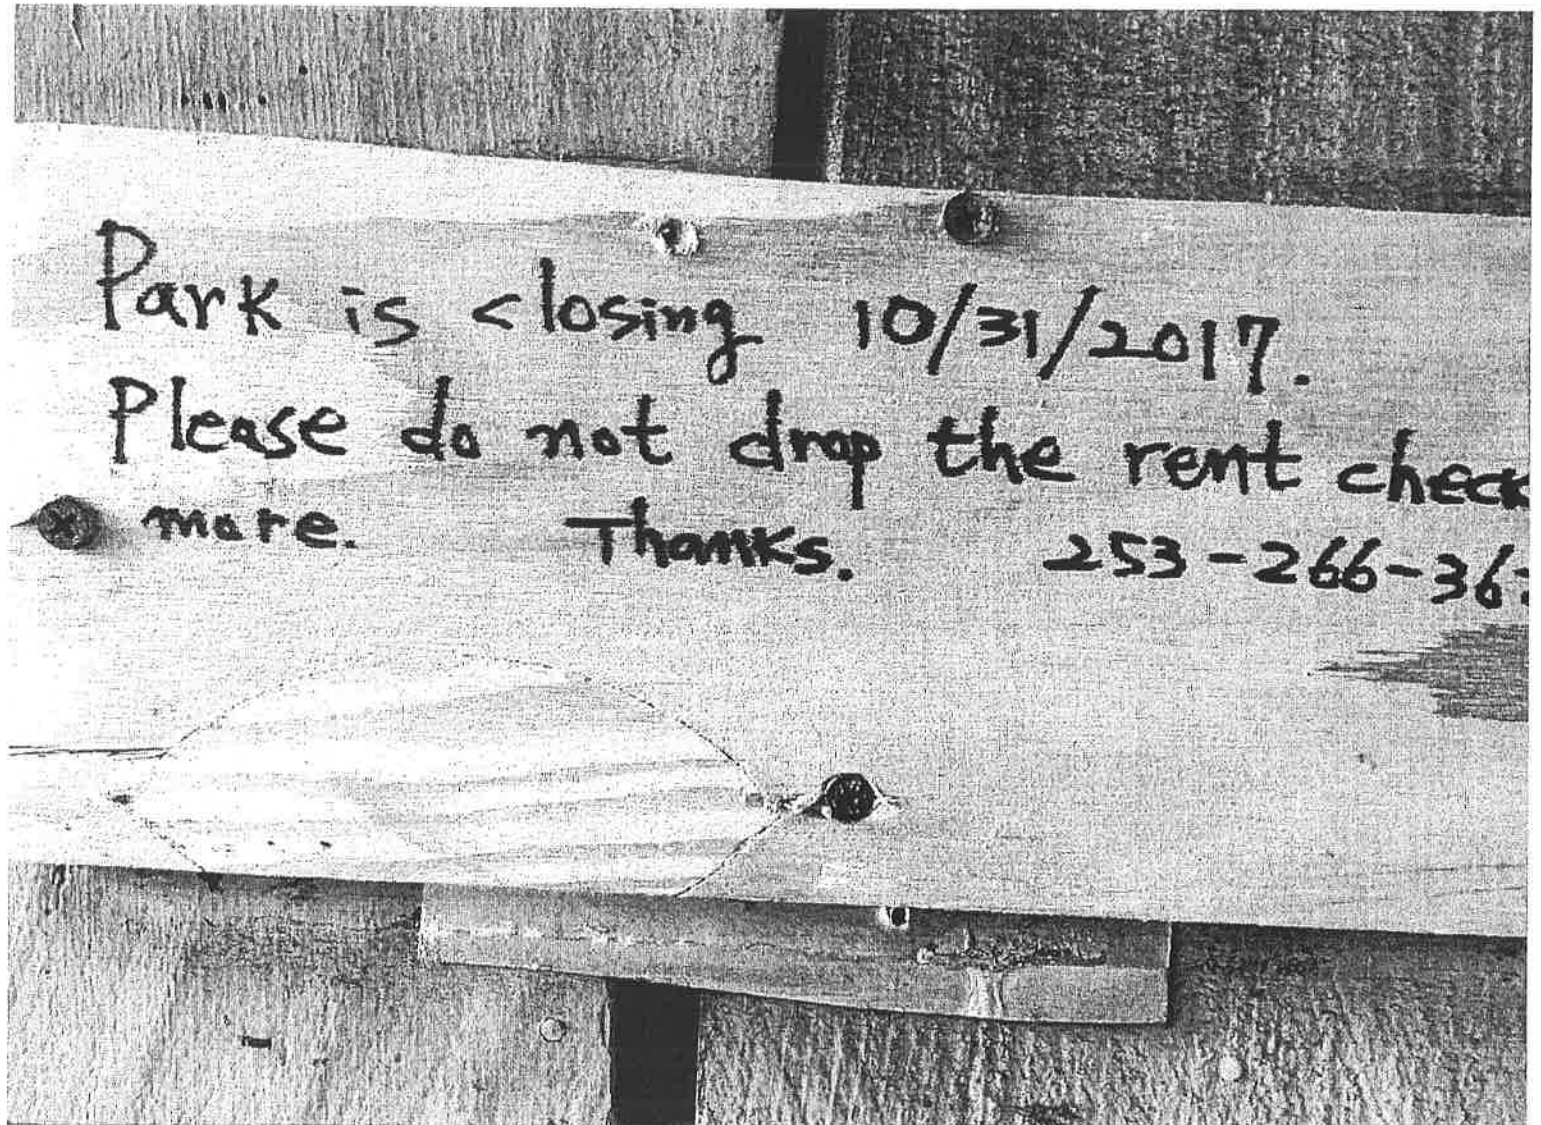 Park is closing 10/31/2017.
Please do not drop the rent check
more. Thanks. 253-266-36